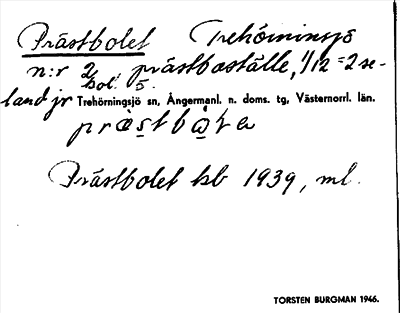 Prästbolet Trehörningsjö
n:r 2, prästboställe, 1/12 = 2 se-
bol. 5.
land jr Trehörningsjö sn, Ångermanl. n. doms. tg, Västernorrl. län.
Prästbolet kb 1939, ml.
TORSTEN BURGMAN 1946.